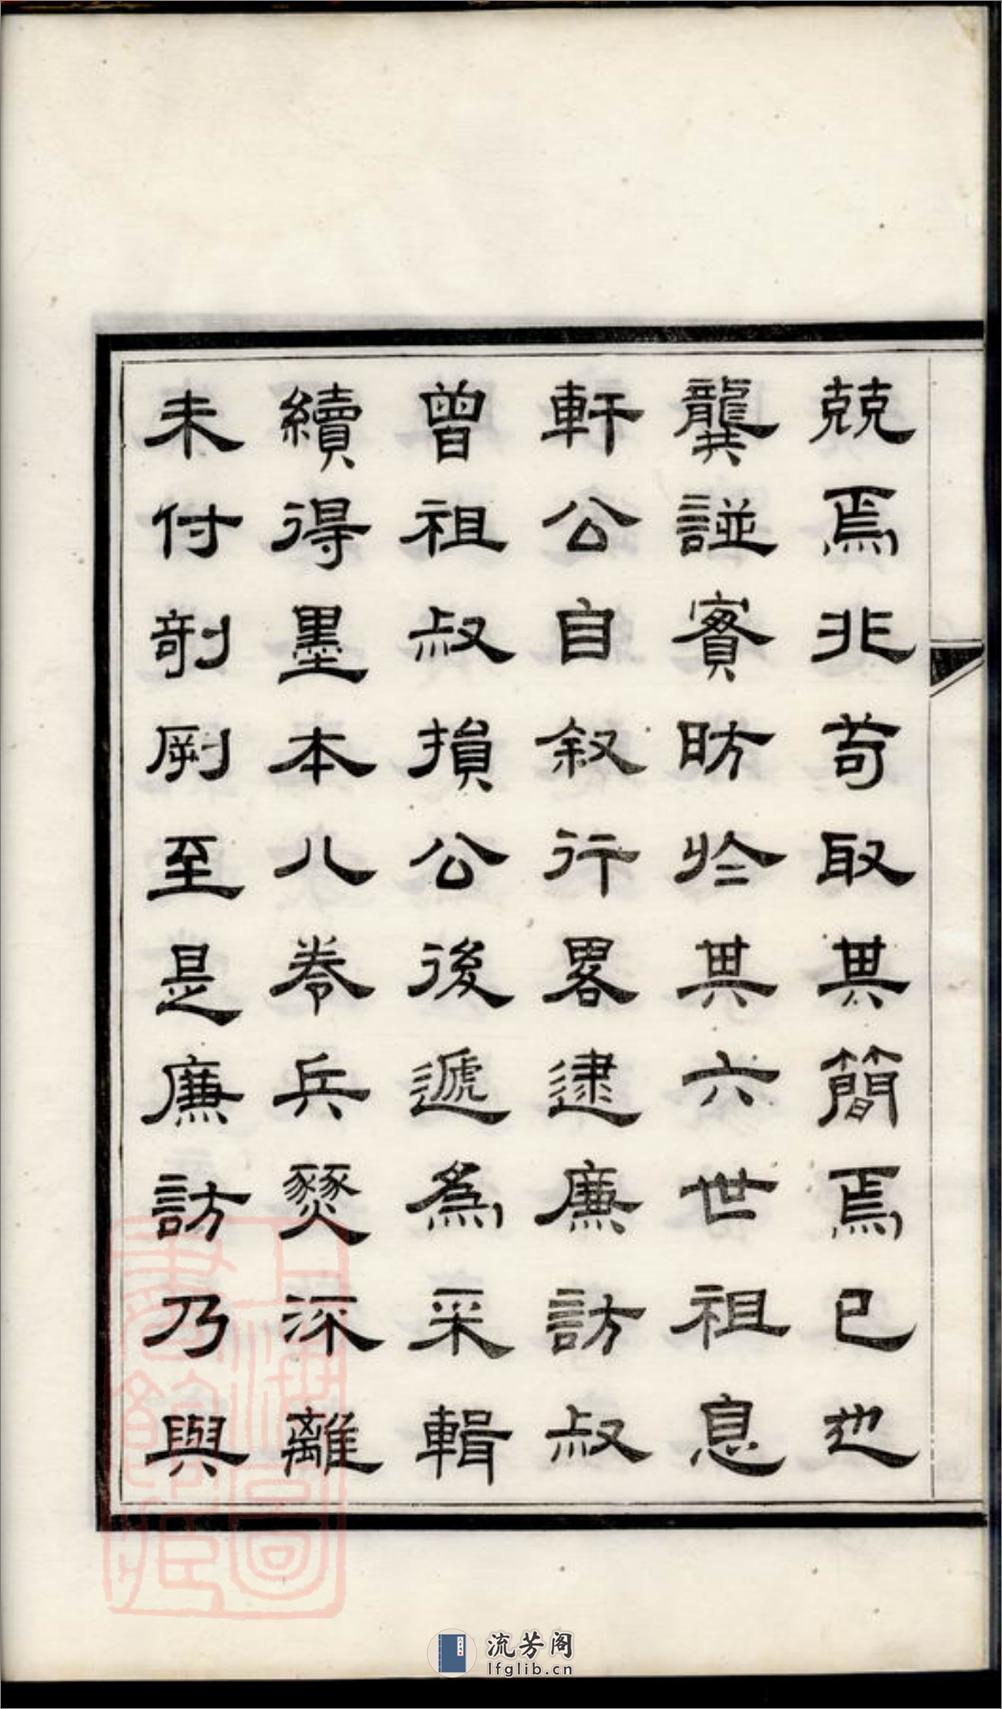 兢焉非苟取其簡焉已也
龔諩賓昉於其六世祖息
軒公自叙行畧逮廉訪叔
曾祖叔損公後遞為采輯
續得墨本八卷兵燹深離
未付剞劂至是廉訪乃與
上海圖書館藏
流芳阁
lfglib.cn